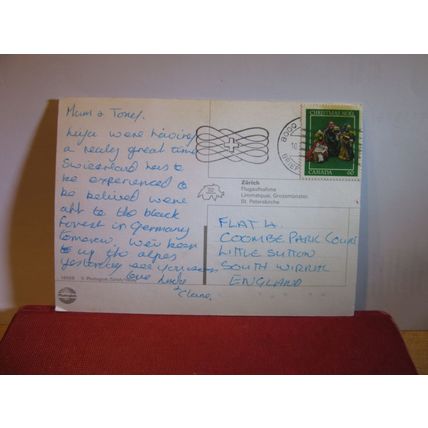 Mum & Toney.
were having
a realy great time
has to
be experienced to
be belived were
to the black
Forest in Germany
tomorow, we'v been
up the alpes
yesterday see you soon
love
Zürich
Flugaufnahme
Limmatquai, Grossmünster,
St. Peterskirche
CHRISTMAS NOËL
CANADA
8000
FLAT 14.
COOMBE PARK COURT
LITTLE SUTTON
SOUTH WIRRAL
ENGLAND